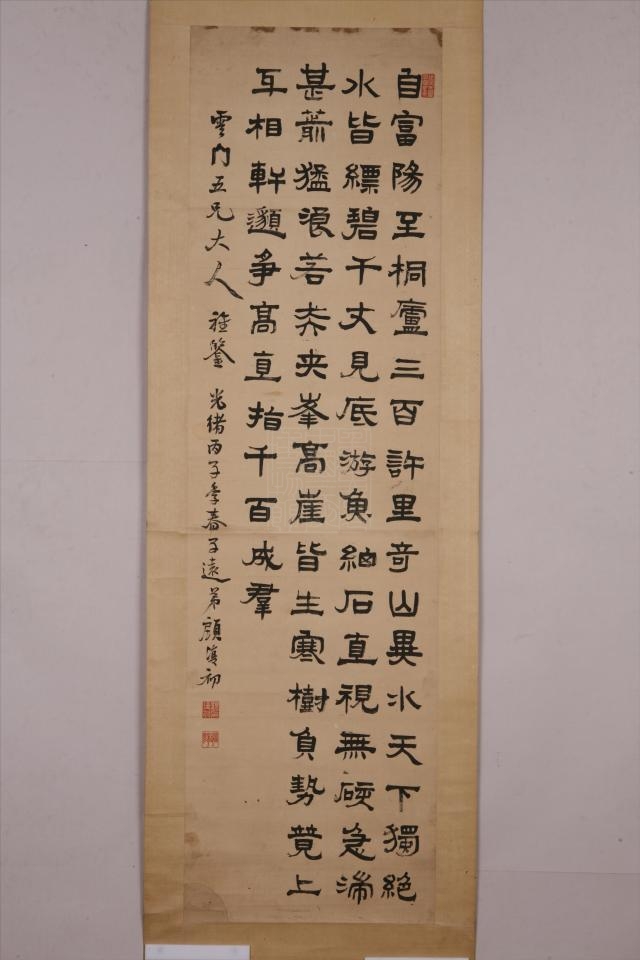 自富陽至桐廬三百許里奇山異水天下獨絕
水皆縹碧千丈見底游魚細石直視無硋急湍
甚箭猛浪若奔夾峯高崖皆生寒樹負勢競上
互相軒邈爭高直指千百成羣
雲門五兄大人雅鑒光緒丙子季春子遠弟顧復初